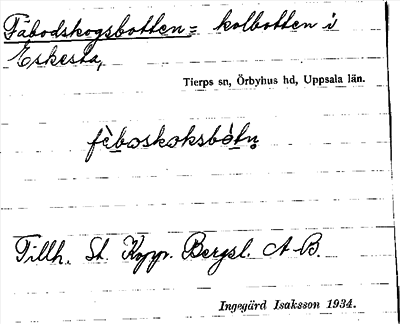 Fäbodskogsbotten = kolbotten i
Eskesta,
Tierps sn, Örbyhus hd, Uppsala län.
fèboskoksbòtn̥
Tillh. St. Kopp. Bergsl. A B.
Ingegärd Isaksson 1934.